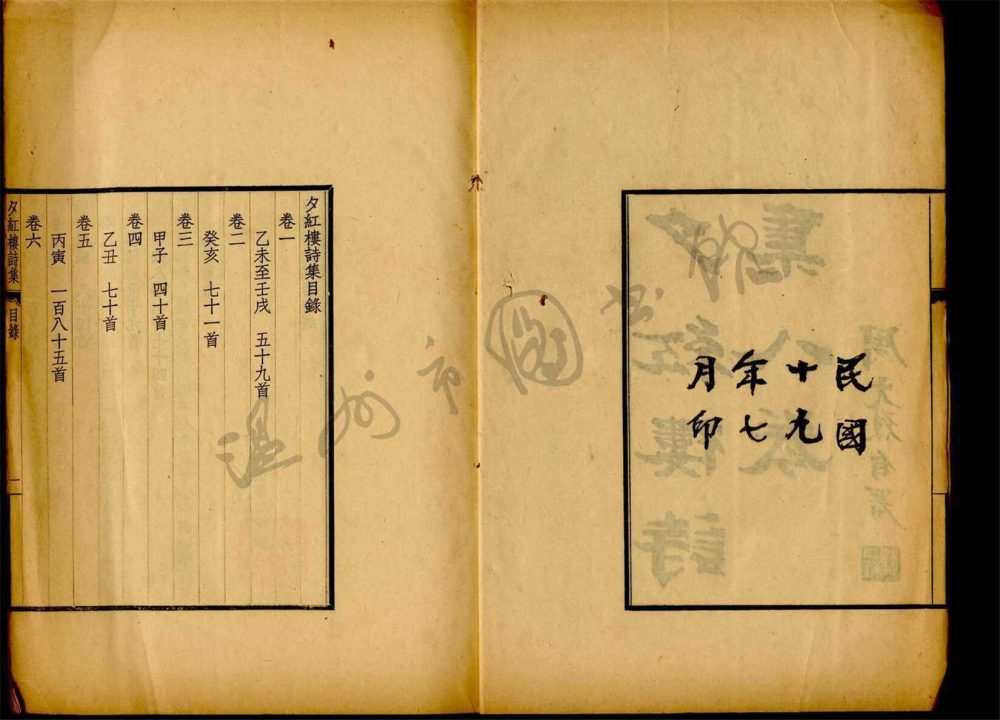 民國
十九
年七
月印
夕紅樓詩集目錄
卷一
乙未至壬戌 五十九首
卷二
癸亥 七十一首
卷三
甲子 四十首
卷四
乙丑 七十首
卷五
丙寅 一百八十五首
卷六
夕紅樓詩集 目錄 一
溫州市圖書館